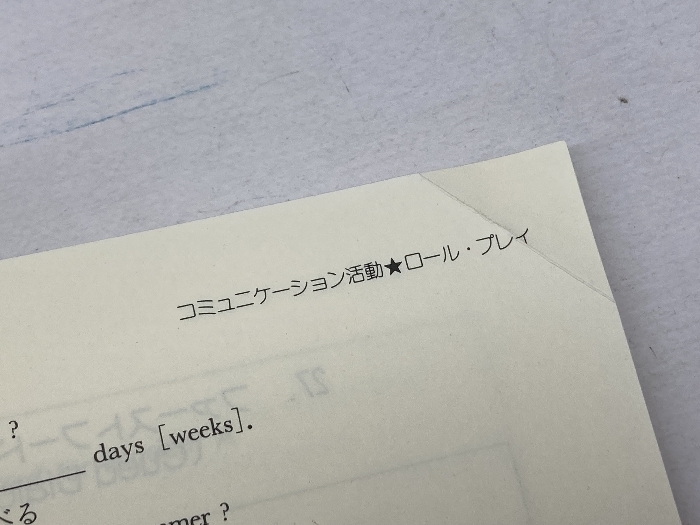 コミュニケーション活動★ロール・プレイ
?
days [weeks].
べる
?